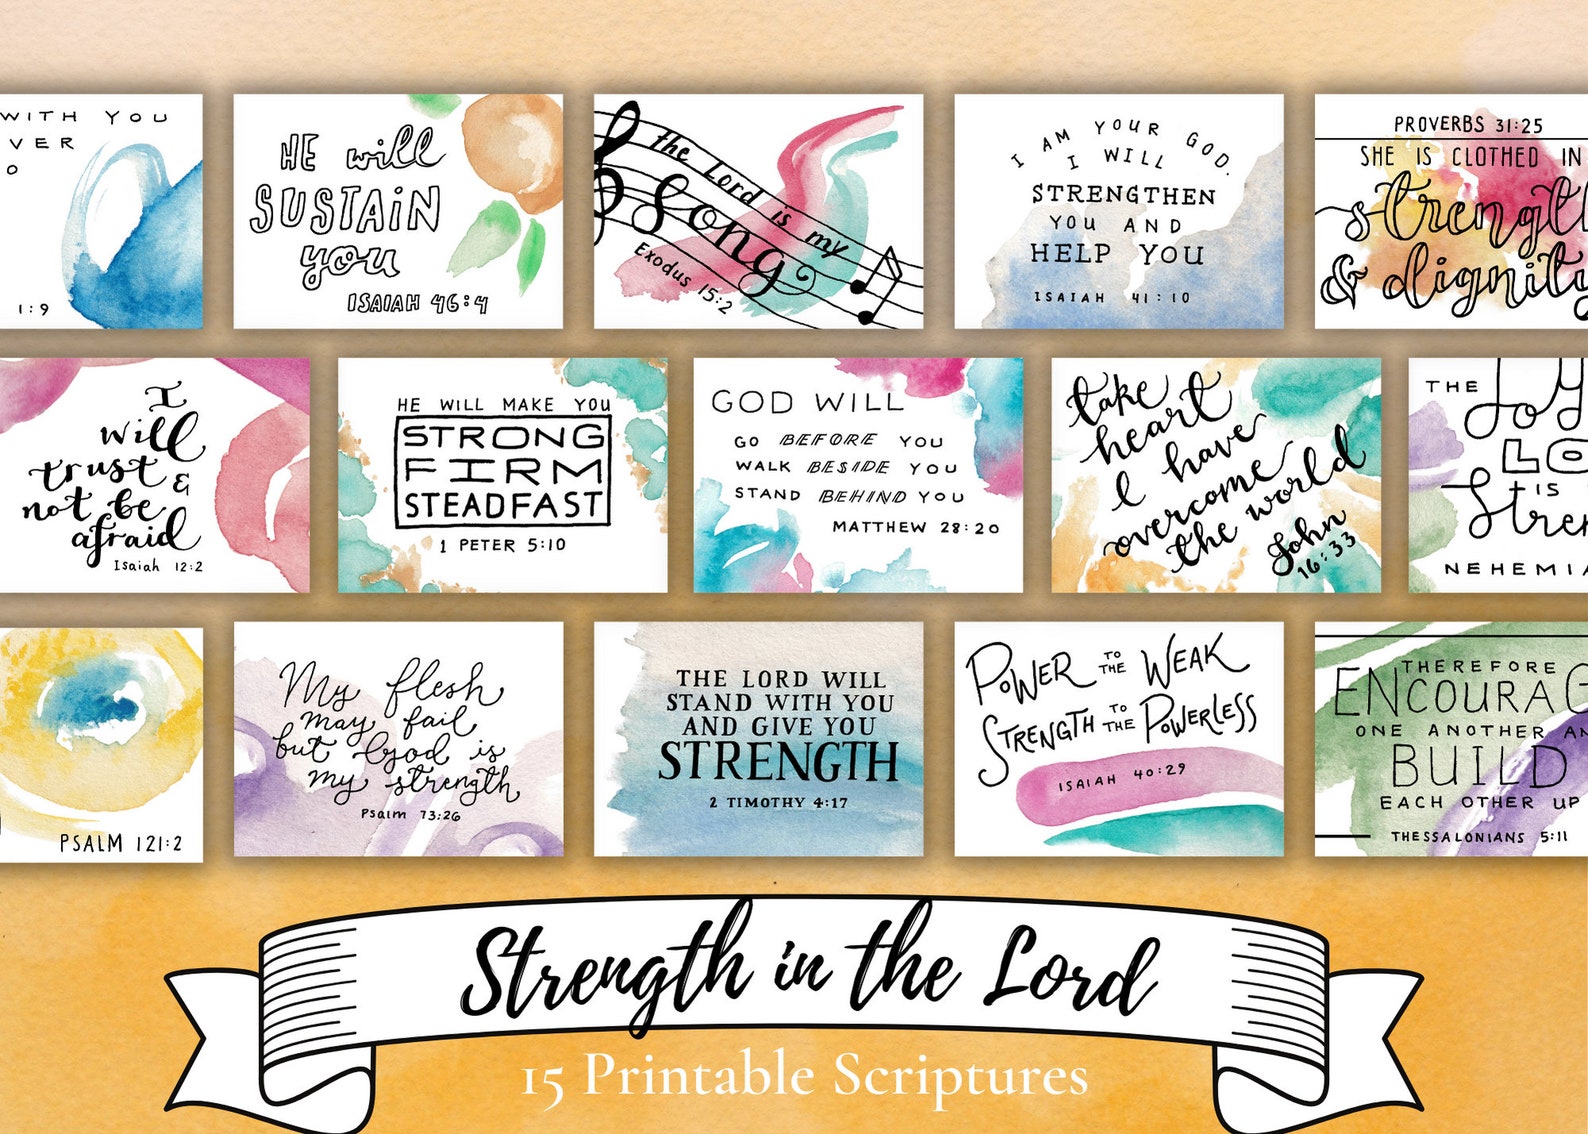 WITH YOU
VER
O
1:9
HE will
SUSTAIN
you
ISAIAH 46:4
the Lord is my
Song
Exodus 15:2
I AM YOUR GOD.
I WILL
STRENGTHEN
YOU AND
HELP YOU
ISAIAH 41:10
PROVERBS 31:25
SHE IS CLOTHED IN
strength
& dignity
I
will
trust &
not be
afraid
Isaiah 12:2
HE WILL MAKE YOU
STRONG
FIRM
STEADFAST
1 PETER 5:10
GOD WILL
GO BEFORE YOU
WALK BESIDE YOU
STAND BEHIND YOU
MATTHEW 28:20
take
heart
I have
overcome
the world
John
16:33
THE JOY
LO
IS
Stren
NEHEMIA
PSALM 121:2
My flesh
may fail
but God is
my strength
Psalm 73:26
THE LORD WILL
STAND WITH YOU
AND GIVE YOU
STRENGTH
2 TIMOTHY 4:17
POWER TO THE WEAK
STRENGTH TO THE POWERLESS
ISAIAH 40:29
THEREFORE
ENCOURAG
ONE ANOTHER AN
BUILD
EACH OTHER UP
THESSALONIANS 5:11
Strength in the Lord
15 Printable Scriptures